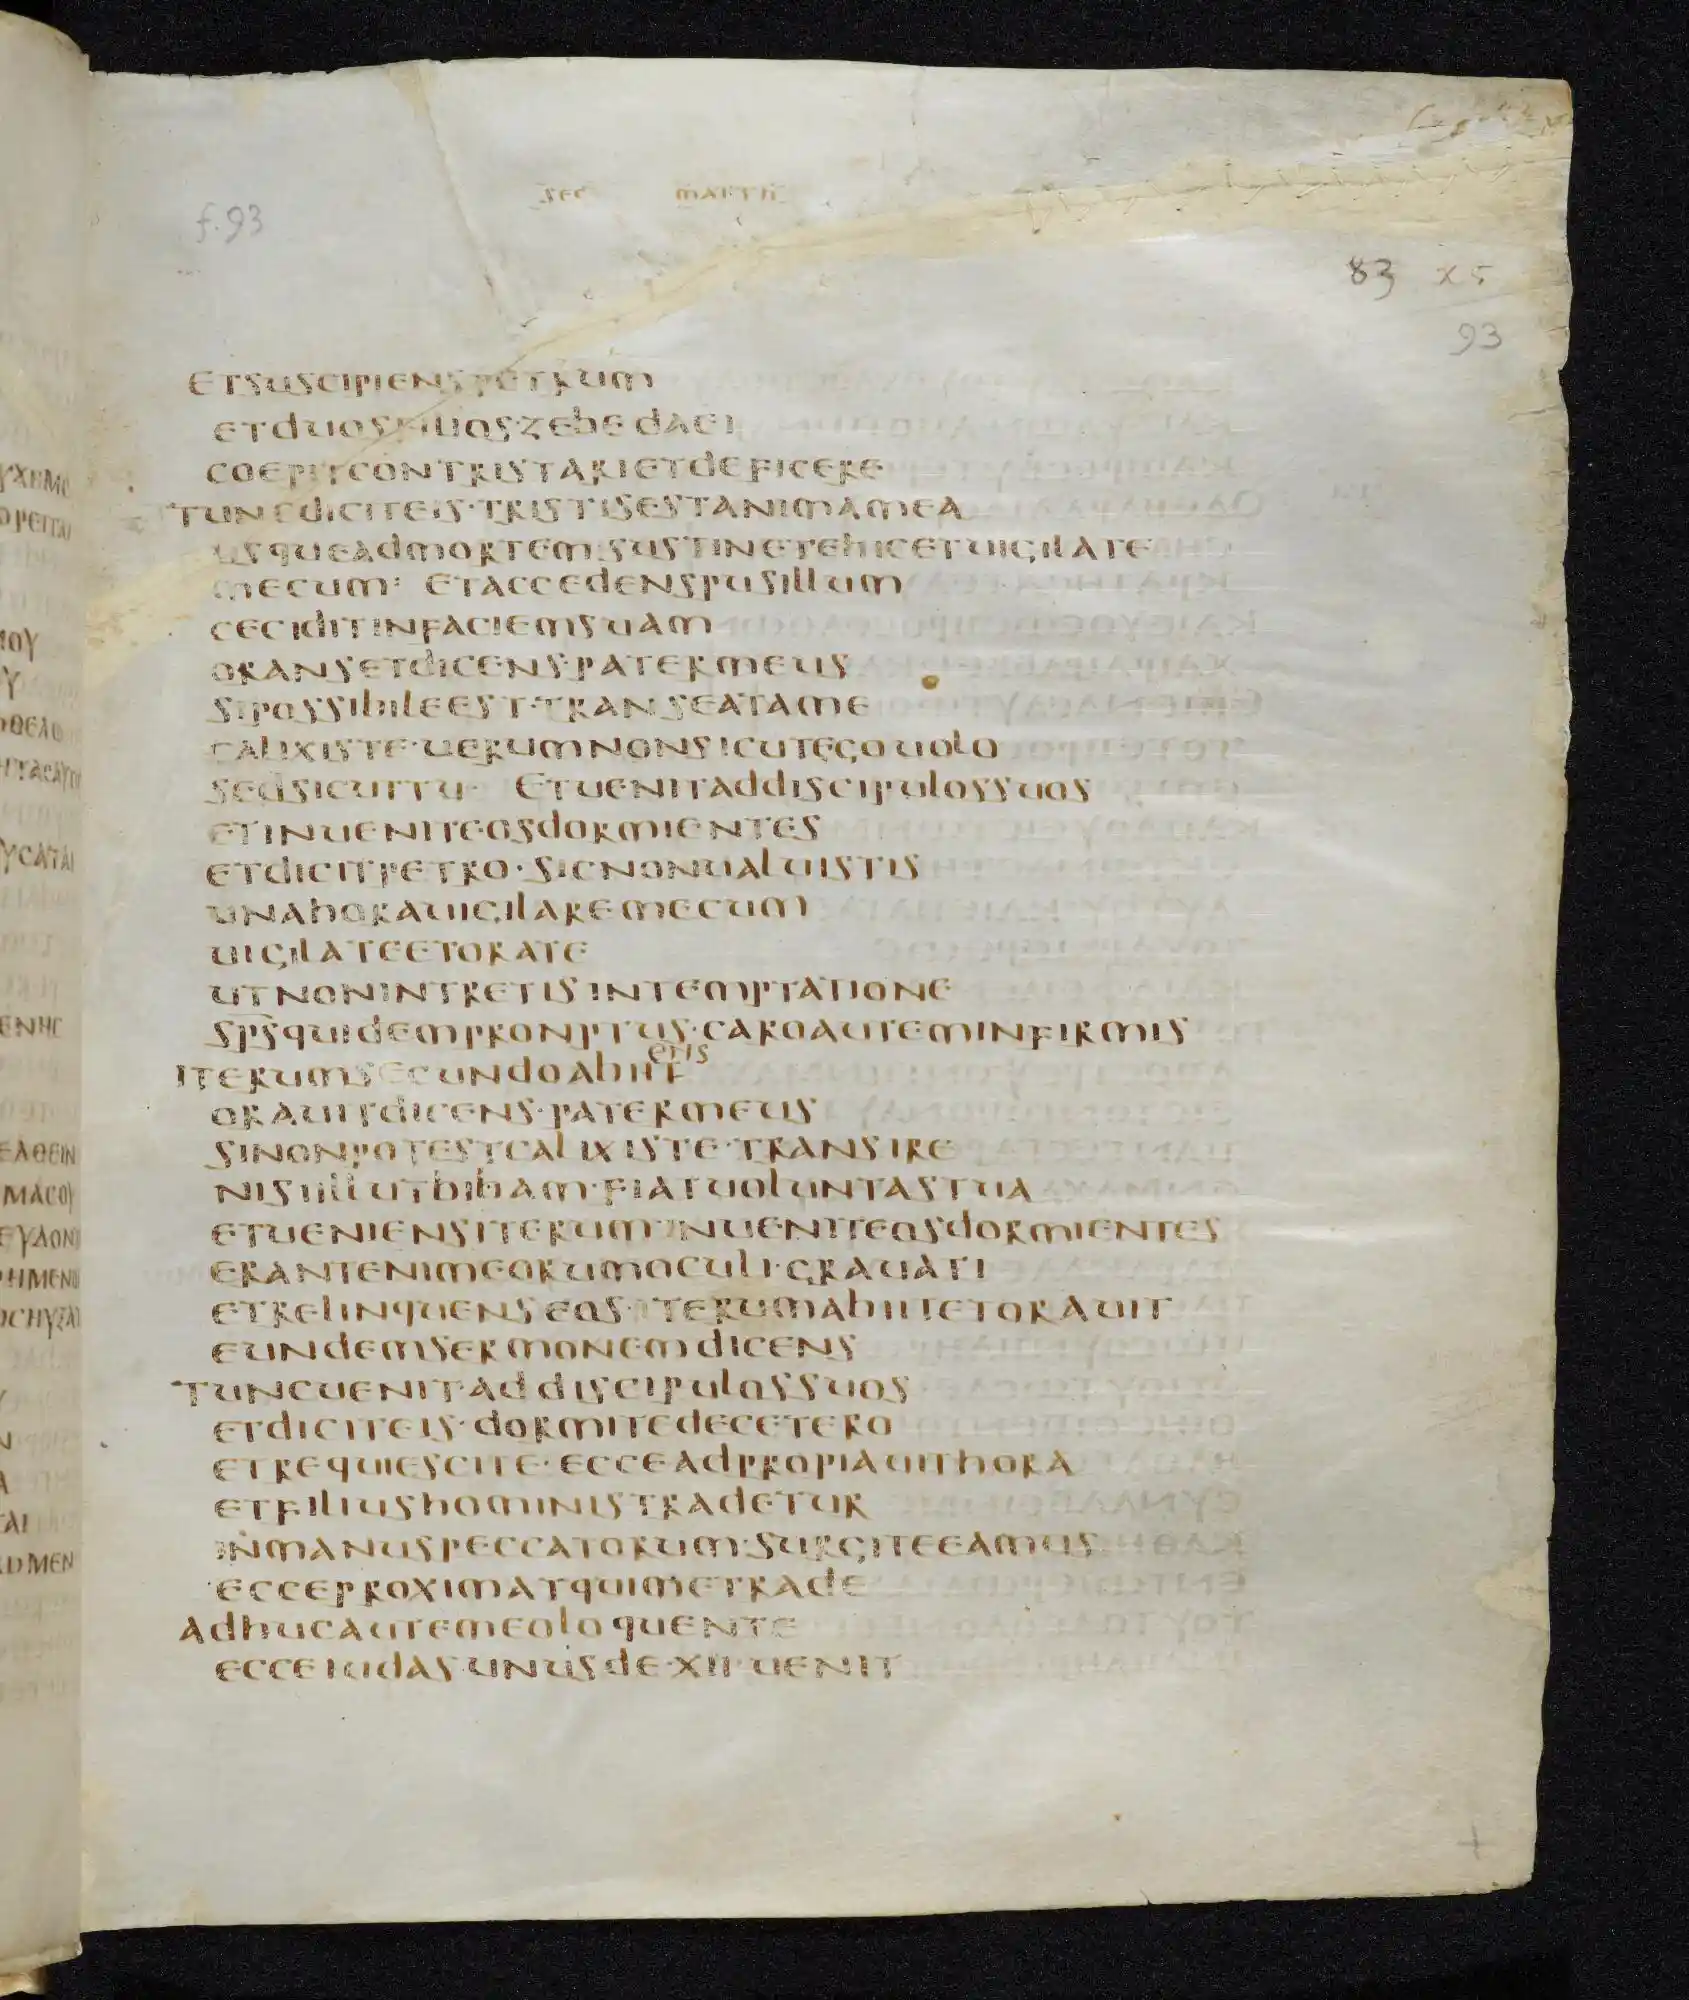 SEC MATTH
f.93
83 X 5
93
ETSUSCIPIENSPETRUM
ETDUOSFILIOSZEBEDAEI
COEPITCONTRISTARIETDEFICERE
TUNCDICITEIS·TRISTISESTANIMAMEA
USQUEADMORTEM:SUSTINETEHICETUIGILATE
MECUM: ETACCEDENSPUSILLUM
CECIDITINFACIEMSUAM
ORANSETDICENS·PATERMEUS
SIPOSSIBILEEST·TRANSEATAME
CALIXISTE·UERUMNONSICUTEGOUOLO
SEDSICUTTU· ETUENITADDISCIPULOSSUOS
ETINUENITEOSDORMIENTES
ETDICITPETRO·SICNONUALUISTIS
UNAHORAUIGILAREMECUM
UIGILATEETORATE
UTNONINTRETISINTEMPTATIONE
SPSQUIDEMPRONPTUS·CAROAUTEMINFIRMIS
eris
ITERUMSECUNDOABIIT
ORAUITDICENS·PATERMEUS
SINONPOTESTCALIXISTE·TRANSIRE
NISIILLUTBIBAM·FIATUOLUNTASTUA
ETUENIENSITERUMINUENITEOSDORMIENTES
ERANTENIMEORUMOCULI·GRAUATI
ETRELINQUENSEOS·ITERUMABIITETORAUIT
EUNDEMSERMONEMDICENS
TUNCUENITADDISCIPULOSSUOS
ETDICITEIS·DORMITEDECETERO
ETREQUIESCITE·ECCEADPROPIAUITHORA
ETFILIUSHOMINISTRADETUR
INMANUSPECCATORUM·SURGITEEAMUS
ECCEPROXIMATQUIMETRADE
ADHUCAUTEMEOLOQUENTE
ECCEIUDAS·UNUSDE·XII·UENIT